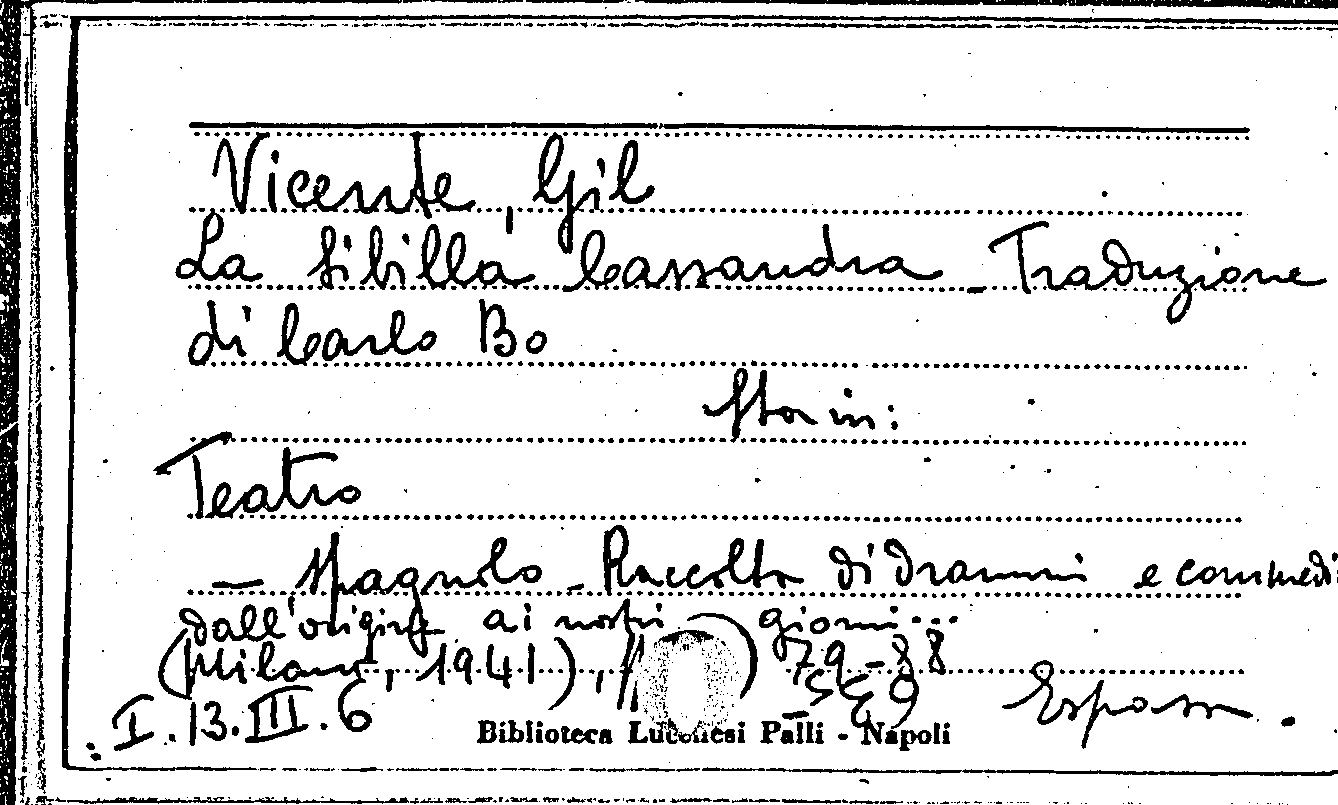 Vicente, Gil
La Sibilla Cassandra - Traduzione
di Carlo Bo
Sta in:
Teatro
— Spagnolo - Raccolta di drammi e commedi
dall'origine ai nostri giorni...
(Milano, 1941), 79-88
I.13.III.6
Biblioteca Lucchesi Palli - Napoli